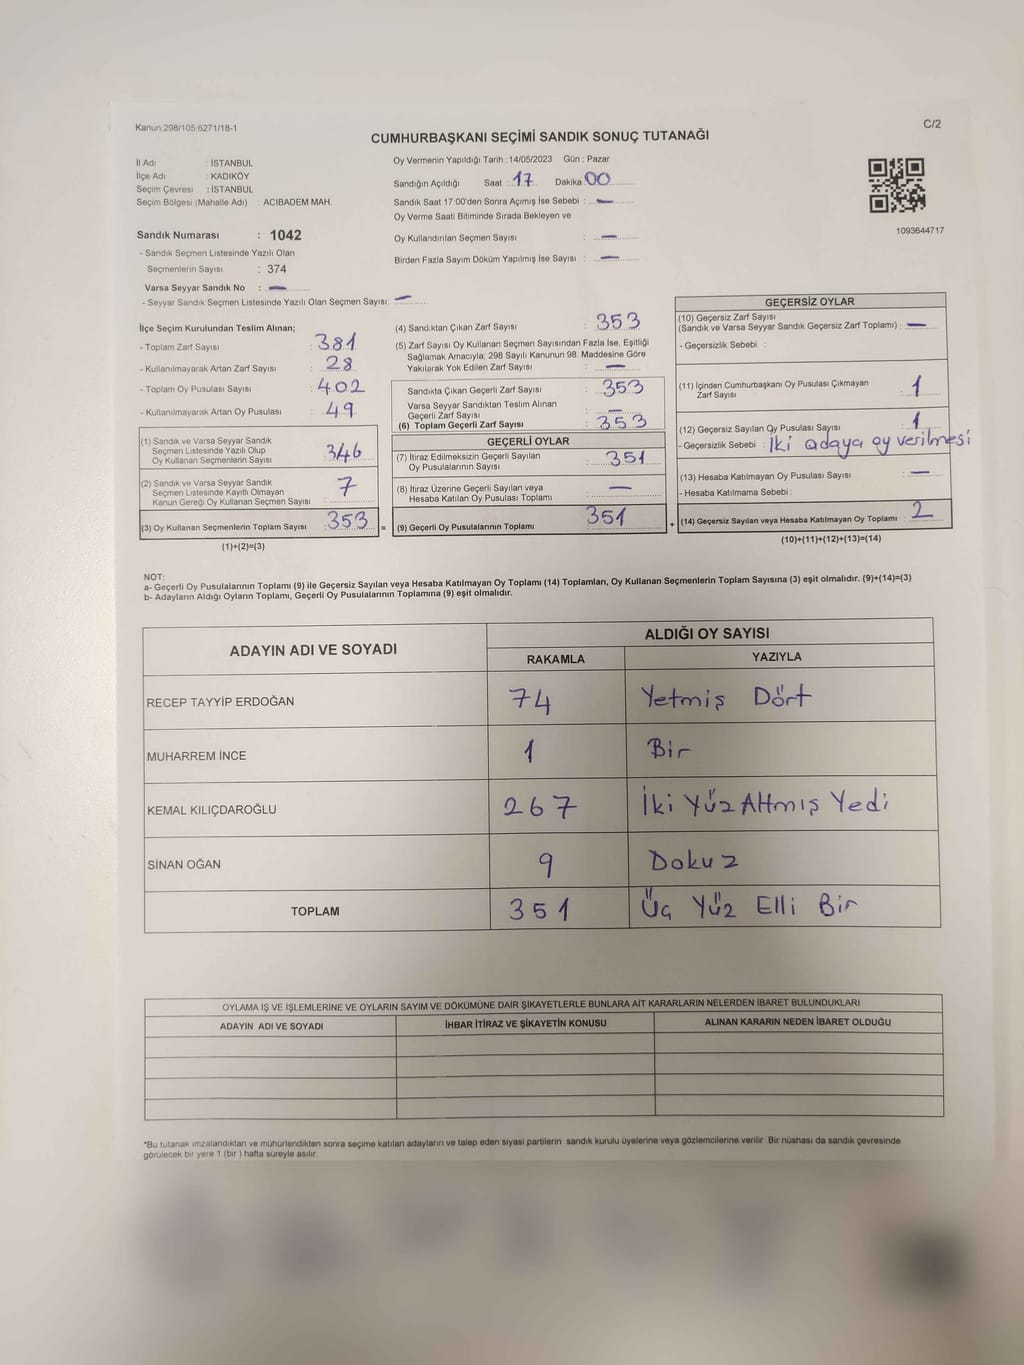 Kanun:298/105:6271/18-1
C/2
CUMHURBAŞKANI SEÇİMİ SANDIK SONUÇ TUTANAĞI
İl Adı : İSTANBUL
İlçe Adı : KADIKÖY
Seçim Çevresi : İSTANBUL
Seçim Bölgesi (Mahalle Adı) : ACIBADEM MAH.
Sandık Numarası : 1042
- Sandık Seçmen Listesinde Yazılı Olan
Seçmenlerin Sayısı : 374
Varsa Seyyar Sandık No : —
- Seyyar Sandık Seçmen Listesinde Yazılı Olan Seçmen Sayısı: —
Oy Vermenin Yapıldığı Tarih : 14/05/2023 Gün : Pazar
Sandığın Açıldığı Saat : 17 Dakika : 00
Sandık Saat 17:00'den Sonra Açımış İse Sebebi : —
Oy Verme Saati Bitiminde Sırada Bekleyen ve
Oy Kullandırılan Seçmen Sayısı : —
Birden Fazla Sayım Döküm Yapılmış İse Sayısı : —
1093644717
İlçe Seçim Kurulundan Teslim Alınan;
- Toplam Zarf Sayısı : 381
- Kullanılmayarak Artan Zarf Sayısı : 28
- Toplam Oy Pusulası Sayısı : 402
- Kullanılmayarak Artan Oy Pusulası : 49
(1) Sandık ve Varsa Seyyar Sandık
Seçmen Listesinde Yazılı Olup
Oy Kullanan Seçmenlerin Sayısı : 346
(2) Sandık ve Varsa Seyyar Sandık
Seçmen Listesinde Kayıtlı Olmayan
Kanun Gereği Oy Kullanan Seçmen Sayısı : 7
(3) Oy Kullanan Seçmenlerin Toplam Sayısı : 353 =
(1)+(2)=(3)
(4) Sandıktan Çıkan Zarf Sayısı : 353
(5) Zarf Sayısı Oy Kullanan Seçmen Sayısından Fazla İse, Eşitliği
Sağlamak Amacıyla; 298 Sayılı Kanunun 98. Maddesine Göre
Yakılarak Yok Edilen Zarf Sayısı : —
Sandıkta Çıkan Geçerli Zarf Sayısı : 353
Varsa Seyyar Sandıktan Teslim Alınan
Geçerli Zarf Sayısı : —
(6) Toplam Geçerli Zarf Sayısı : 353
GEÇERLİ OYLAR
(7) İtiraz Edilmeksizin Geçerli Sayılan
Oy Pusulalarının Sayısı : 351
(8) İtiraz Üzerine Geçerli Sayılan veya
Hesaba Katılan Oy Pusulası Toplamı : —
(9) Geçerli Oy Pusulalarının Toplamı : 351 +
GEÇERSİZ OYLAR
(10) Geçersiz Zarf Sayısı
(Sandık ve Varsa Seyyar Sandık Geçersiz Zarf Toplamı) : —
- Geçersizlik Sebebi :
(11) İçinden Cumhurbaşkanı Oy Pusulası Çıkmayan
Zarf Sayısı : 1
(12) Geçersiz Sayılan Oy Pusulası Sayısı : 1
- Geçersizlik Sebebi : İki adaya oy verilmesi
(13) Hesaba Katılmayan Oy Pusulası Sayısı : —
- Hesaba Katılmama Sebebi :
(14) Geçersiz Sayılan veya Hesaba Katılmayan Oy Toplamı : 2
(10)+(11)+(12)+(13)=(14)
NOT:
a- Geçerli Oy Pusulalarının Toplamı (9) ile Geçersiz Sayılan veya Hesaba Katılmayan Oy Toplamı (14) Toplamları, Oy Kullanan Seçmenlerin Toplam Sayısına (3) eşit olmalıdır. (9)+(14)=(3)
b- Adayların Aldığı Oyların Toplamı, Geçerli Oy Pusulalarının Toplamına (9) eşit olmalıdır.
ADAYIN ADI VE SOYADI
ALDIĞI OY SAYISI
RAKAMLA YAZIYLA
RECEP TAYYİP ERDOĞAN 74 Yetmiş Dört
MUHARREM İNCE 1 Bir
KEMAL KILIÇDAROĞLU 267 İki Yüz Altmış Yedi
SİNAN OĞAN 9 Dokuz
TOPLAM 351 Üç Yüz Elli Bir
OYLAMA İŞ VE İŞLEMLERİNE VE OYLARIN SAYIM VE DÖKÜMÜNE DAİR ŞİKAYETLERLE BUNLARA AİT KARARLARIN NELERDEN İBARET BULUNDUKLARI
ADAYIN ADI VE SOYADI İHBAR İTİRAZ VE ŞİKAYETİN KONUSU ALINAN KARARIN NEDEN İBARET OLDUĞU
*Bu tutanak imzalandıktan ve mühürlendikten sonra seçime katılan adayların ve talep eden siyasi partilerin sandık kurulu üyelerine veya gözlemcilerine verilir. Bir nüshası da sandık çevresinde
görülecek bir yere 1 (bir) hafta süreyle asılır.